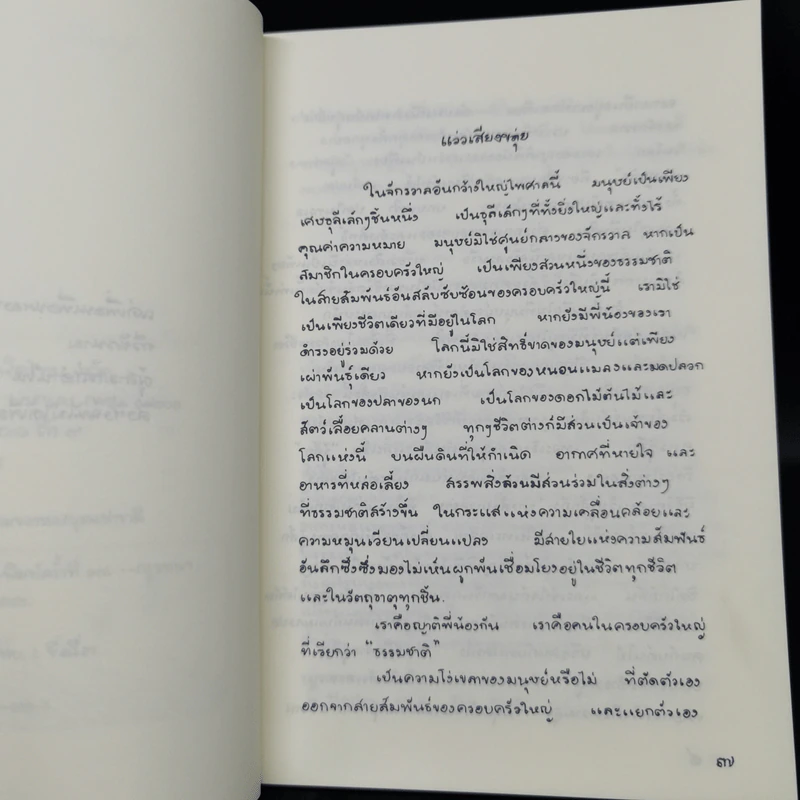 แว่วเสียงขลุ่ย
ในจักรวาลอันกว้างใหญ่ไพศาลนี้ มนุษย์เป็นเพียง
เศษธุลีเล็กๆชิ้นหนึ่ง เป็นธุลีเล็กๆที่ทั้งยิ่งใหญ่และทั้งไร้
คุณค่าความหมาย มนุษย์มิใช่ศูนย์กลางของจักรวาล หากเป็น
สมาชิกในครอบครัวใหญ่ เป็นเพียงส่วนหนึ่งของธรรมชาติ
ในสายสัมพันธ์อันสลับซับซ้อนของครอบครัวใหญ่นี้ เรามิใช่
เป็นเพียงชีวิตเดียวที่มีอยู่ในโลก หากยังมีพี่น้องของเรา
ดำรงอยู่ร่วมด้วย โลกนี้มิใช่สิทธิ์ขาดของมนุษย์แต่เพียง
เผ่าพันธุ์เดียว หากยังเป็นโลกของหนอนแมลงและมดปลวก
เป็นโลกของปลาของนก เป็นโลกของดอกไม้ต้นไม้และ
สัตว์เลื้อยคลานต่างๆ ทุกๆชีวิตต่างก็มีส่วนเป็นเจ้าของ
โลกแห่งนี้ บนผืนดินที่ให้กำเนิด อากาศที่หายใจ และ
อาหารที่หล่อเลี้ยง สรรพสิ่งล้วนมีส่วนร่วมในสิ่งต่างๆ
ที่ธรรมชาติสร้างขึ้น ในกระแสแห่งความเคลื่อนคล้อยและ
ความหมุนเวียนเปลี่ยนแปลง มีสายใยแห่งความสัมพันธ์
อันลึกซึ้งซึ่งมองไม่เห็นผูกพันเชื่อมโยงอยู่ในชีวิตทุกชีวิต
และในวัตถุธาตุทุกชิ้น.
เราคือญาติพี่น้องกัน เราคือคนในครอบครัวใหญ่
ที่เรียกว่า "ธรรมชาติ"
เป็นความโง่เขลาของมนุษย์หรือไม่ ที่ตัดตัวเอง
ออกจากสายสัมพันธ์ของครอบครัวใหญ่ และแยกตัวเอง
๓